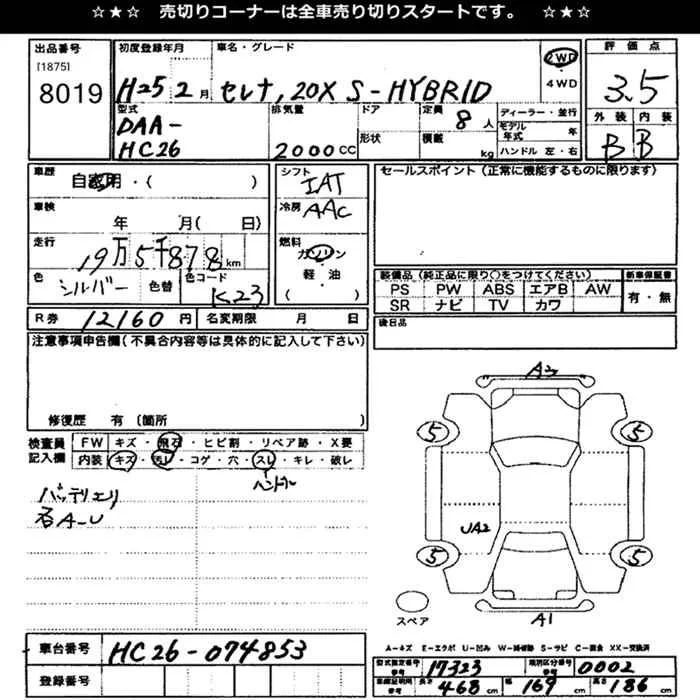 ☆★☆ 売切りコーナーは全車売り切りスタートです。 ☆★☆
出品番号
[1875]
8019
初度登録年月
H25 2月
車名・グレード
セレナ, 20X S-HYBRID
2WD
4WD
評価点
3.5
外装 内装
B B
型式
DAA-
HC26
排気量
2000cc
ドア
形状
定員
8人
積載
kg
ディーラー・並行
モデル年式 年
ハンドル 左・右
車歴
自家用・( )
車検
年 月( 日)
走行
19万5千878km
色
シルバー
色替
色コード
K23
シフト
IAT
冷房
AAC
燃料
ガソリン
軽・油
( )
セールスポイント(正常に機能するものに限ります)
装備品(純正品に限り○をつけてください)
PS PW ABS エアB AW
SR ナビ TV カワ
新車保証書
有・無
後日品
R券 12160円
名変期限 月 日
注意事項申告欄(不具合内容等は具体的に記入して下さい)
修復歴 有(箇所
検査員記入欄
FW キズ・飛石・ヒビ割・リペア跡・X要
内装 キズ・汚レ・コゲ・穴・スレ・キレ・破レ
ハンドル
バッテリエリ
各A-U
A3
5
5
UA2
5
5
スペア
A1
車台番号
HC26-074853
登録番号
A-キズ E-エクボ U-凹ミ W-補修跡 S-サビ C-腐食 XX-交換済
型式指定番号
参考
17323
類別区分番号
参考
0002
車両証明用
参考
長さ
468cm
幅
169cm
高さ
186cm